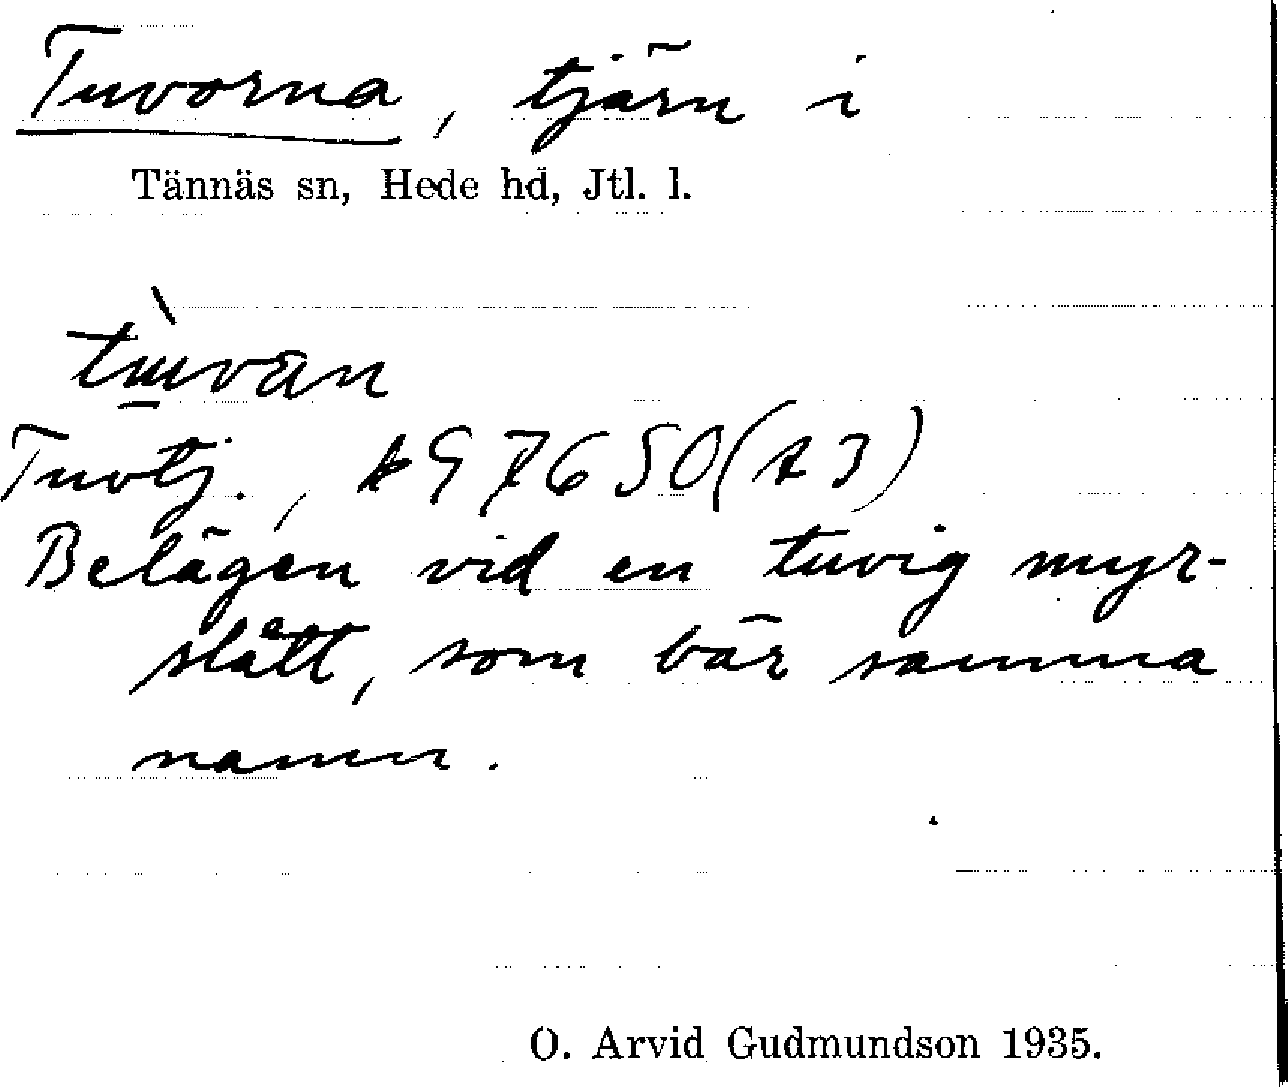 Tuvorna, tjärn i
Tännäs sn, Hede hd, Jtl. l.
Tuvtj.,
Belägen vid en tuvig myr-
slått, som bär samma
namn.
O. Arvid Gudmundson 1935.